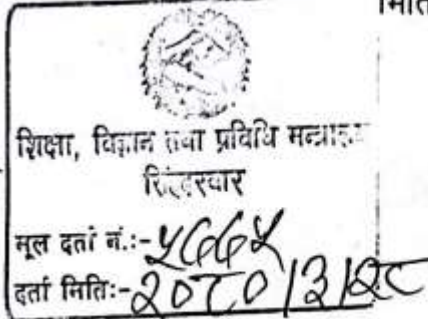 मिति
शिक्षा, विज्ञान तथा प्रविधि मन्त्रालय
सिंहदरवार
मूल दर्ता नं.:- ५७७५
दर्ता मितिः- २०८०/३/२८